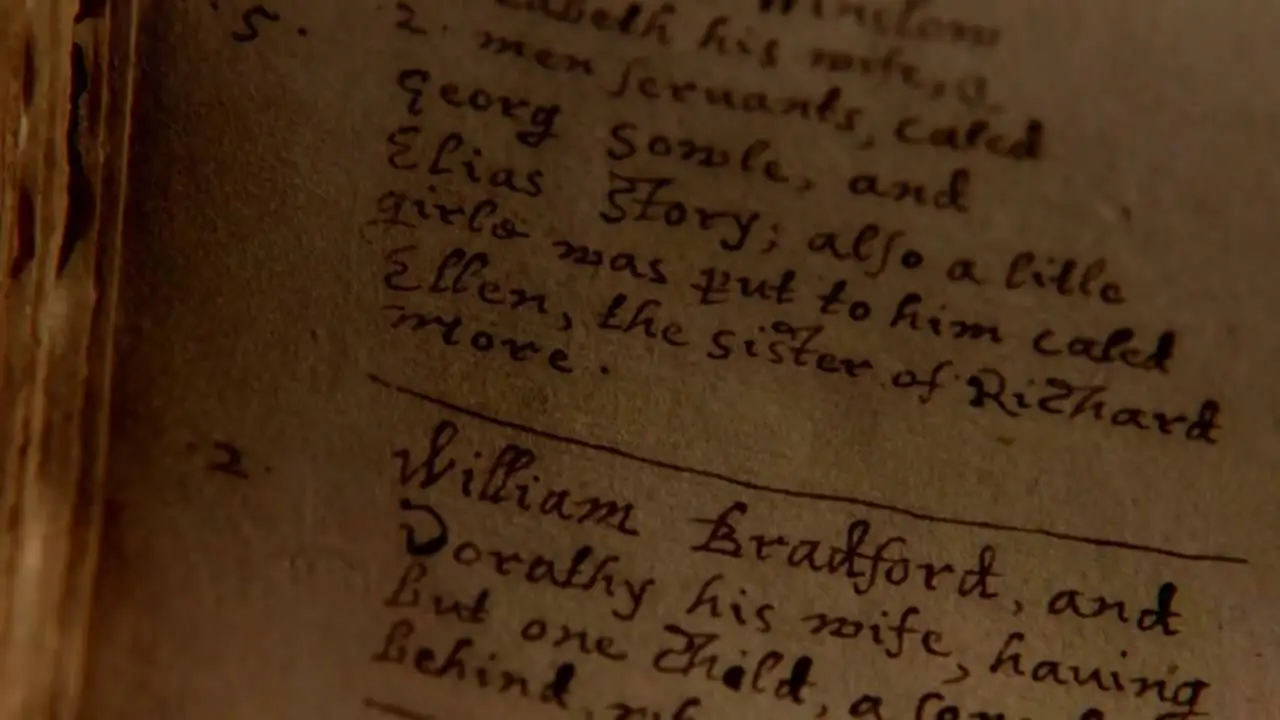 Winslow
5. 2. men seruants, caled
his wife, &
Georg Sowle, and
Elias Story; also a litle
girle was put to him caled
Ellen, the sister of Richard
More.
2. William Bradford, and
Dorathy his wife, hauing
but one child, a sone
behind,